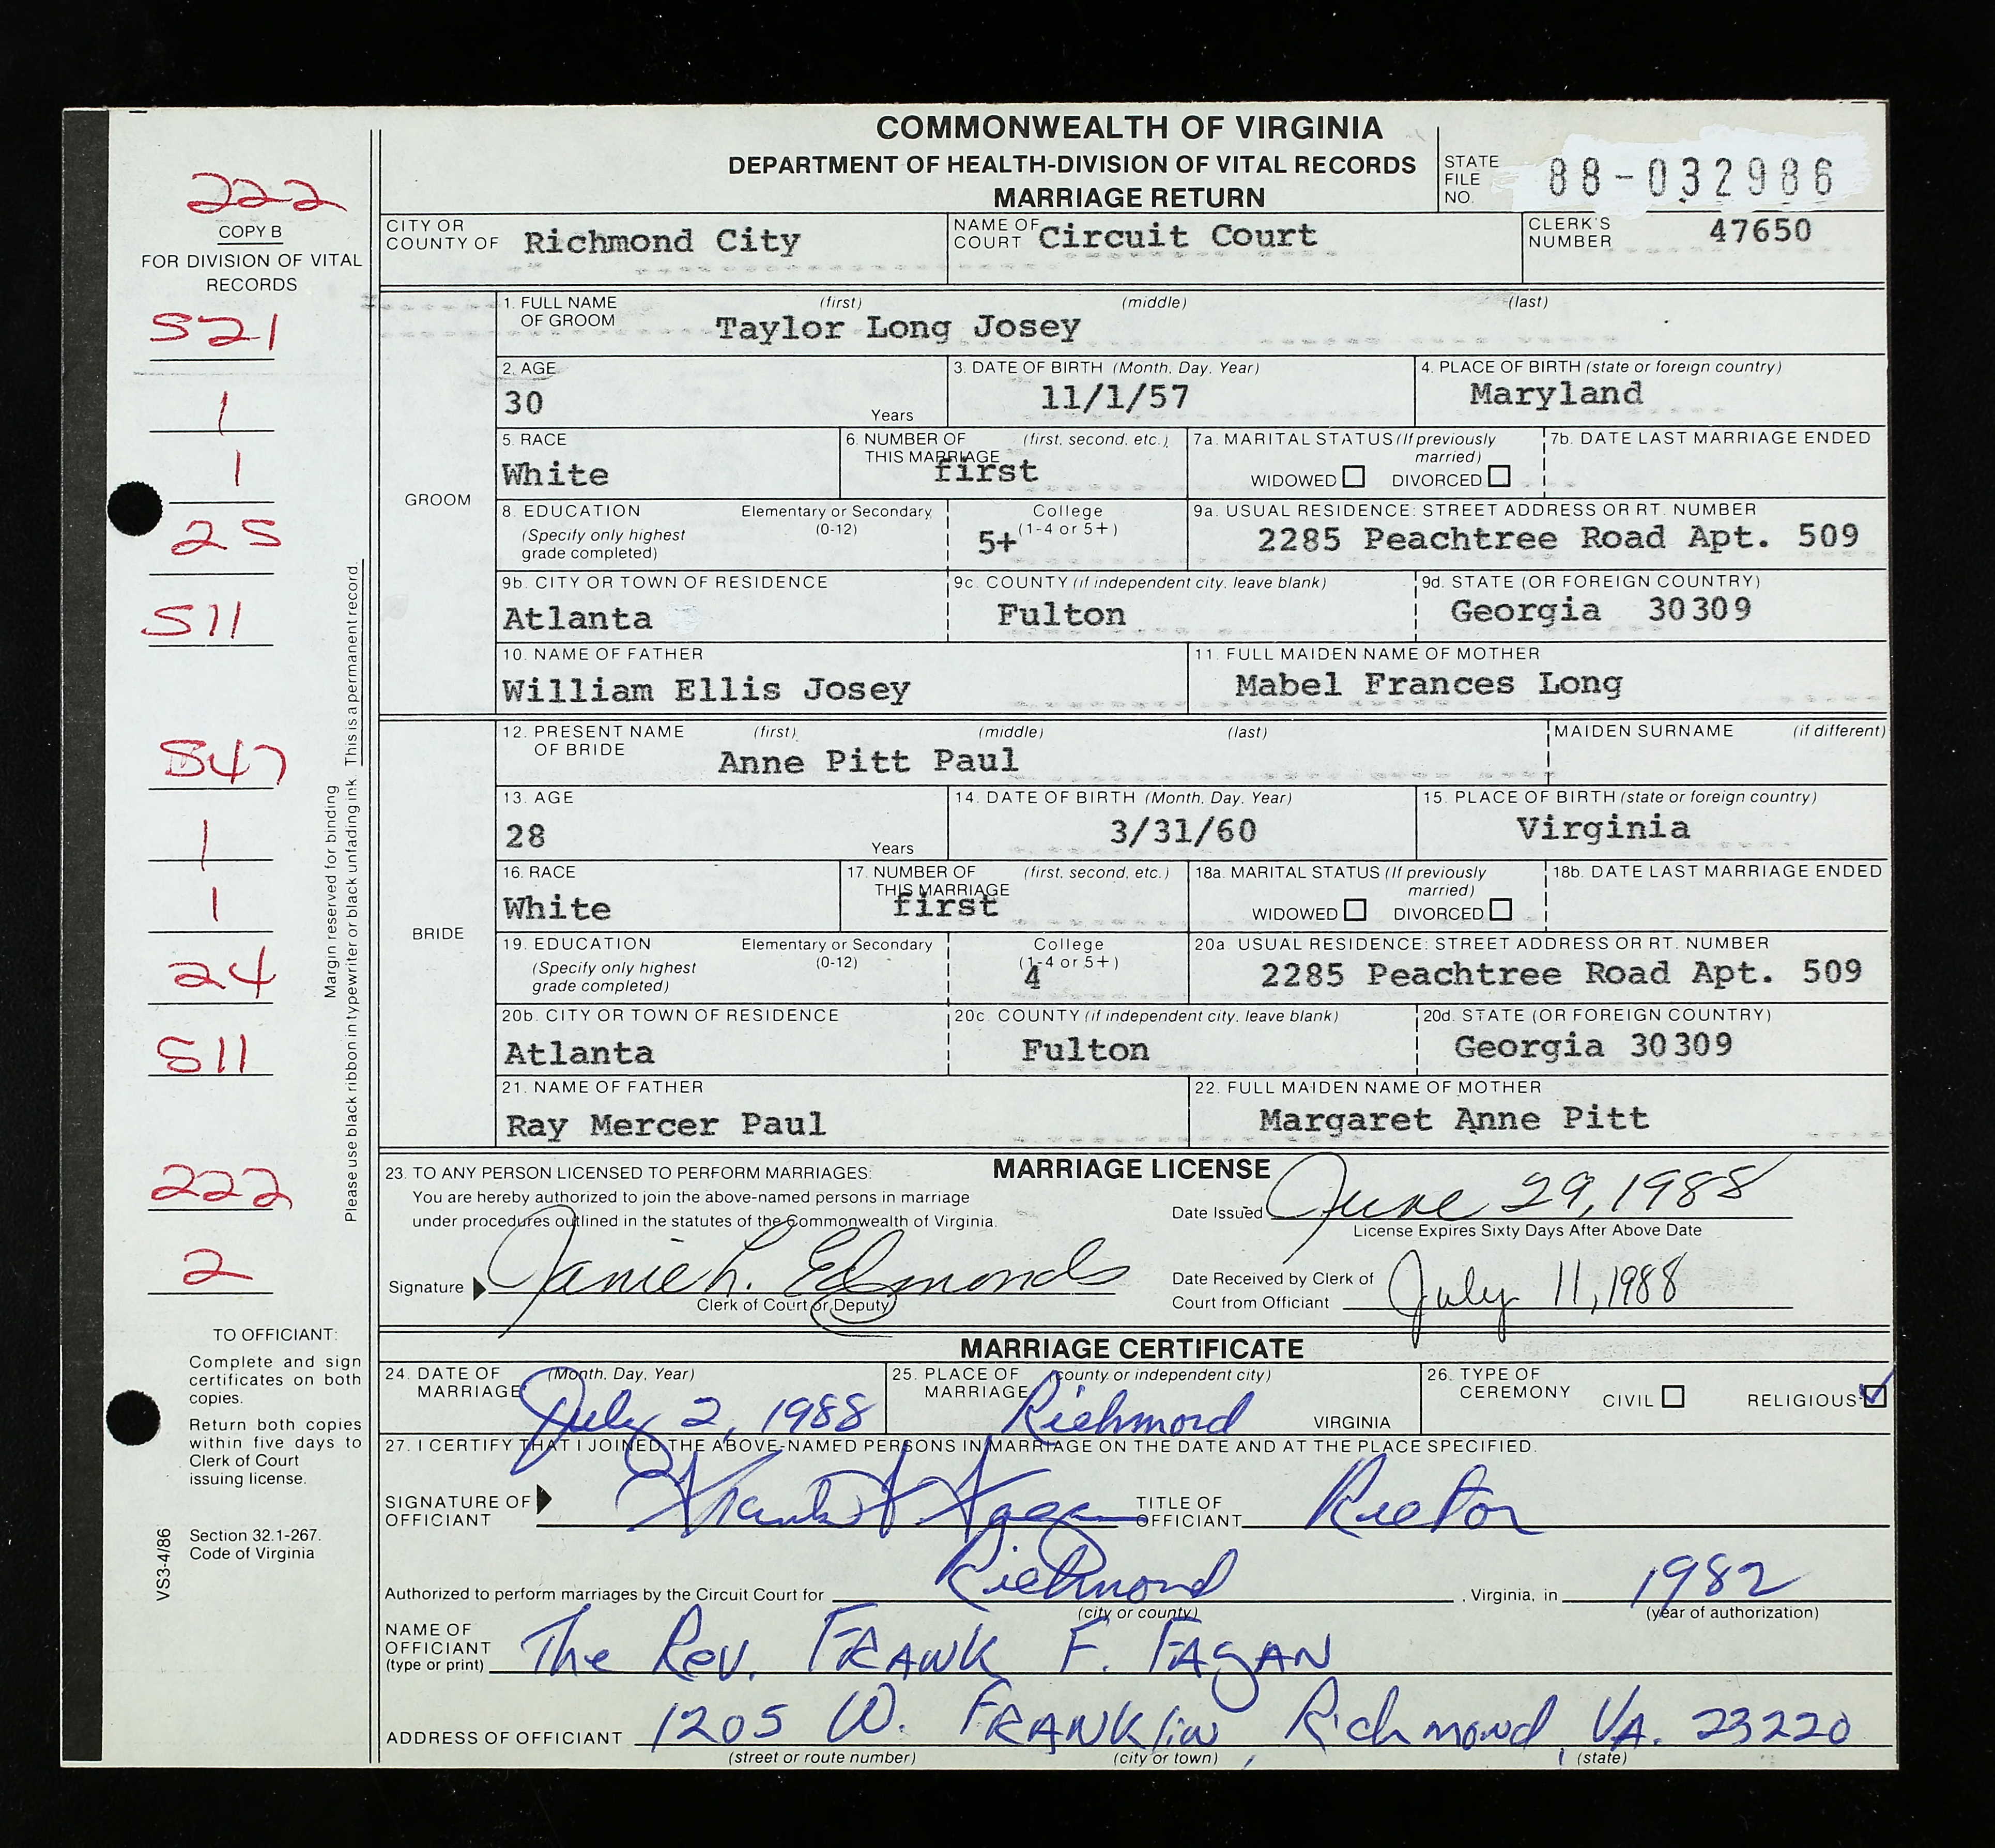 COMMONWEALTH OF VIRGINIA
DEPARTMENT OF HEALTH-DIVISION OF VITAL RECORDS
MARRIAGE RETURN
STATE FILE NO. 88-032986
222
COPY B
FOR DIVISION OF VITAL
RECORDS
521
1
1
25
511
547
1
1
24
511
222
2
Margin reserved for binding
Please use black ribbon in typewriter or black unfading ink. This is a permanent record.
TO OFFICIANT:
Complete and sign
certificates on both
copies.
Return both copies
within five days to
Clerk of Court
issuing license.
Section 32.1-267.
Code of Virginia
VS3-4/86
CITY OR COUNTY OF Richmond City NAME OF COURT Circuit Court CLERK'S NUMBER 47650
GROOM
1. FULL NAME OF GROOM (first) (middle) (last)
Taylor Long Josey
2. AGE 3. DATE OF BIRTH (Month, Day, Year) 4. PLACE OF BIRTH (state or foreign country)
30 Years 11/1/57 Maryland
5. RACE 6. NUMBER OF THIS MARRIAGE (first, second, etc.) 7a. MARITAL STATUS (If previously married) 7b. DATE LAST MARRIAGE ENDED
White first WIDOWED DIVORCED
8. EDUCATION (Specify only highest grade completed) Elementary or Secondary (0-12) College (1-4 or 5+) 9a. USUAL RESIDENCE: STREET ADDRESS OR RT. NUMBER
5+ 2285 Peachtree Road Apt. 509
9b. CITY OR TOWN OF RESIDENCE 9c. COUNTY (if independent city, leave blank) 9d. STATE (OR FOREIGN COUNTRY)
Atlanta Fulton Georgia 30309
10. NAME OF FATHER 11. FULL MAIDEN NAME OF MOTHER
William Ellis Josey Mabel Frances Long
BRIDE
12. PRESENT NAME OF BRIDE (first) (middle) (last) MAIDEN SURNAME (if different)
Anne Pitt Paul
13. AGE 14. DATE OF BIRTH (Month, Day, Year) 15. PLACE OF BIRTH (state or foreign country)
28 Years 3/31/60 Virginia
16. RACE 17. NUMBER OF THIS MARRIAGE (first, second, etc.) 18a. MARITAL STATUS (If previously married) 18b. DATE LAST MARRIAGE ENDED
White first WIDOWED DIVORCED
19. EDUCATION (Specify only highest grade completed) Elementary or Secondary (0-12) College (1-4 or 5+) 20a. USUAL RESIDENCE: STREET ADDRESS OR RT. NUMBER
4 2285 Peachtree Road Apt. 509
20b. CITY OR TOWN OF RESIDENCE 20c. COUNTY (if independent city, leave blank) 20d. STATE (OR FOREIGN COUNTRY)
Atlanta Fulton Georgia 30309
21. NAME OF FATHER 22. FULL MAIDEN NAME OF MOTHER
Ray Mercer Paul Margaret Anne Pitt
23. TO ANY PERSON LICENSED TO PERFORM MARRIAGES: MARRIAGE LICENSE
You are hereby authorized to join the above-named persons in marriage
under procedures outlined in the statutes of the Commonwealth of Virginia.
Date Issued June 29, 1988
License Expires Sixty Days After Above Date
Signature Janie L. Edmonds
Clerk of Court or Deputy
Date Received by Clerk of Court from Officiant July 11, 1988
MARRIAGE CERTIFICATE
24. DATE OF MARRIAGE (Month, Day, Year) July 2, 1988 25. PLACE OF MARRIAGE (county or independent city) Richmond VIRGINIA 26. TYPE OF CEREMONY CIVIL RELIGIOUS ✓
27. I CERTIFY THAT I JOINED THE ABOVE-NAMED PERSONS IN MARRIAGE ON THE DATE AND AT THE PLACE SPECIFIED.
SIGNATURE OF OFFICIANT Frank F. Fagan TITLE OF OFFICIANT Rector
Authorized to perform marriages by the Circuit Court for Richmond, Virginia, in 1982
(city or county) (year of authorization)
NAME OF OFFICIANT (type or print) The Rev. FRANK F. FAGAN
ADDRESS OF OFFICIANT 1205 W. FRANKlin, Richmond, VA. 23220
(street or route number) (city or town) (state)